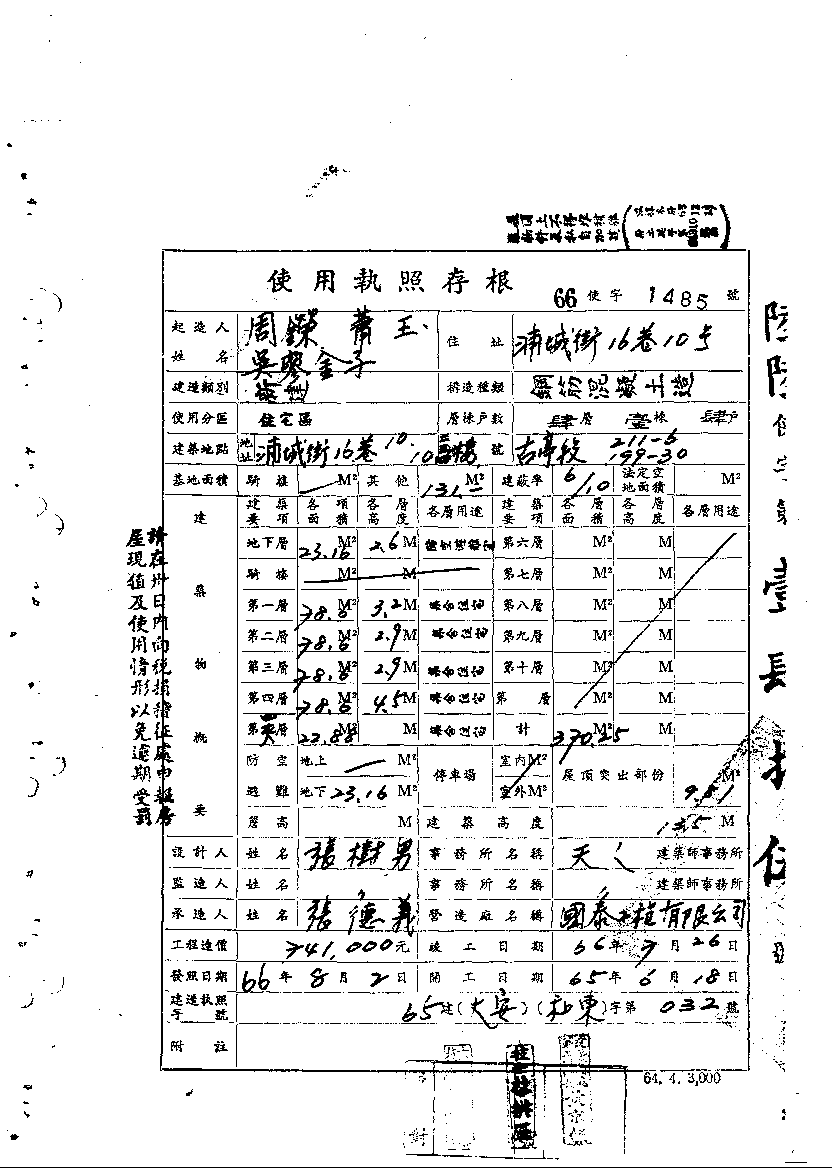 使用執照存根
66 使字 1485 號
起造人姓名 周鑅 蕭玉 吳廖金子 住址 浦城街16巷10号
建造類別 構造種類 鋼筋混凝土造
使用分區 住宅區 層棟戶數 肆層 壹棟 肆戶
建築地點 地址 浦城街16巷10 號 古亭段 211-6 199-30
基地面積 騎樓 M² 其他 131 M² 建蔽率 6/10 法定空地面積 M²
建築物概要
建築要項 各項面積 各層高度 各層用途 建築要項 各層面積 各層高度 各層用途
地下層 23.16 M² 2.6 M 第六層 M² M
騎樓 M² M 第七層 M² M
第一層 78.6 M² 3.2 M 集合住宅 第八層 M² M
第二層 78.6 M² 2.9 M 集合住宅 第九層 M² M
第三層 78.6 M² 2.9 M 集合住宅 第十層 M² M
第四層 78.6 M² 4.5 M 集合住宅 第 層 M² M
第 層 22.88 M² M 集合住宅 計 370.25 M² M
防空避難 地上 M² 停車場 室內 M² 屋頂突出部份 M²
地下 23.16 M² 室外 M² 9.81
簷高 M 建築高度 13.5 M
設計人 姓名 張樹男 事務所名稱 天 建築師事務所
監造人 姓名 事務所名稱 建築師事務所
承造人 姓名 張德義 營造廠名稱 國泰工程有限公司
工程造價 741,000元 竣工日期 66年7月26日
發照日期 66年8月2日 開工日期 65年6月18日
建造執照字號 65建(大安)(和東)字第032號
附註
64. 4. 3,000
請在卅日內向稅捐稽征處申報房
屋現值及使用情形以免逾期受罰